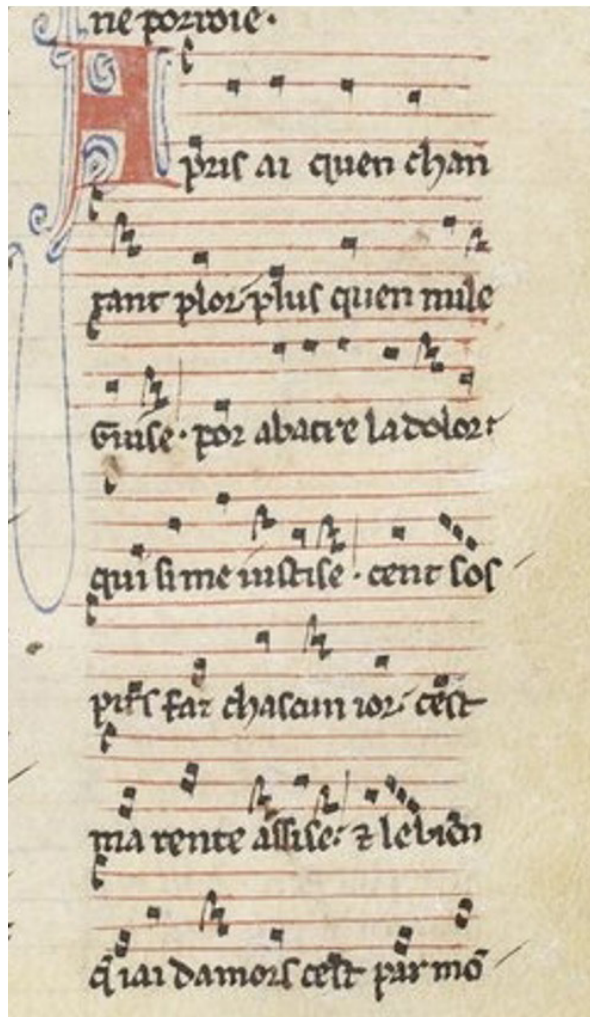 ne porroie.
Apris ai quen chan
tant plor plus quen mile
Guise. por abatre la dolor
qui si me iustise. cent sos
pirs faz chascun ior. cest
ma rente assise. ⁊ le bien
q̃ iai damors cest par mõ